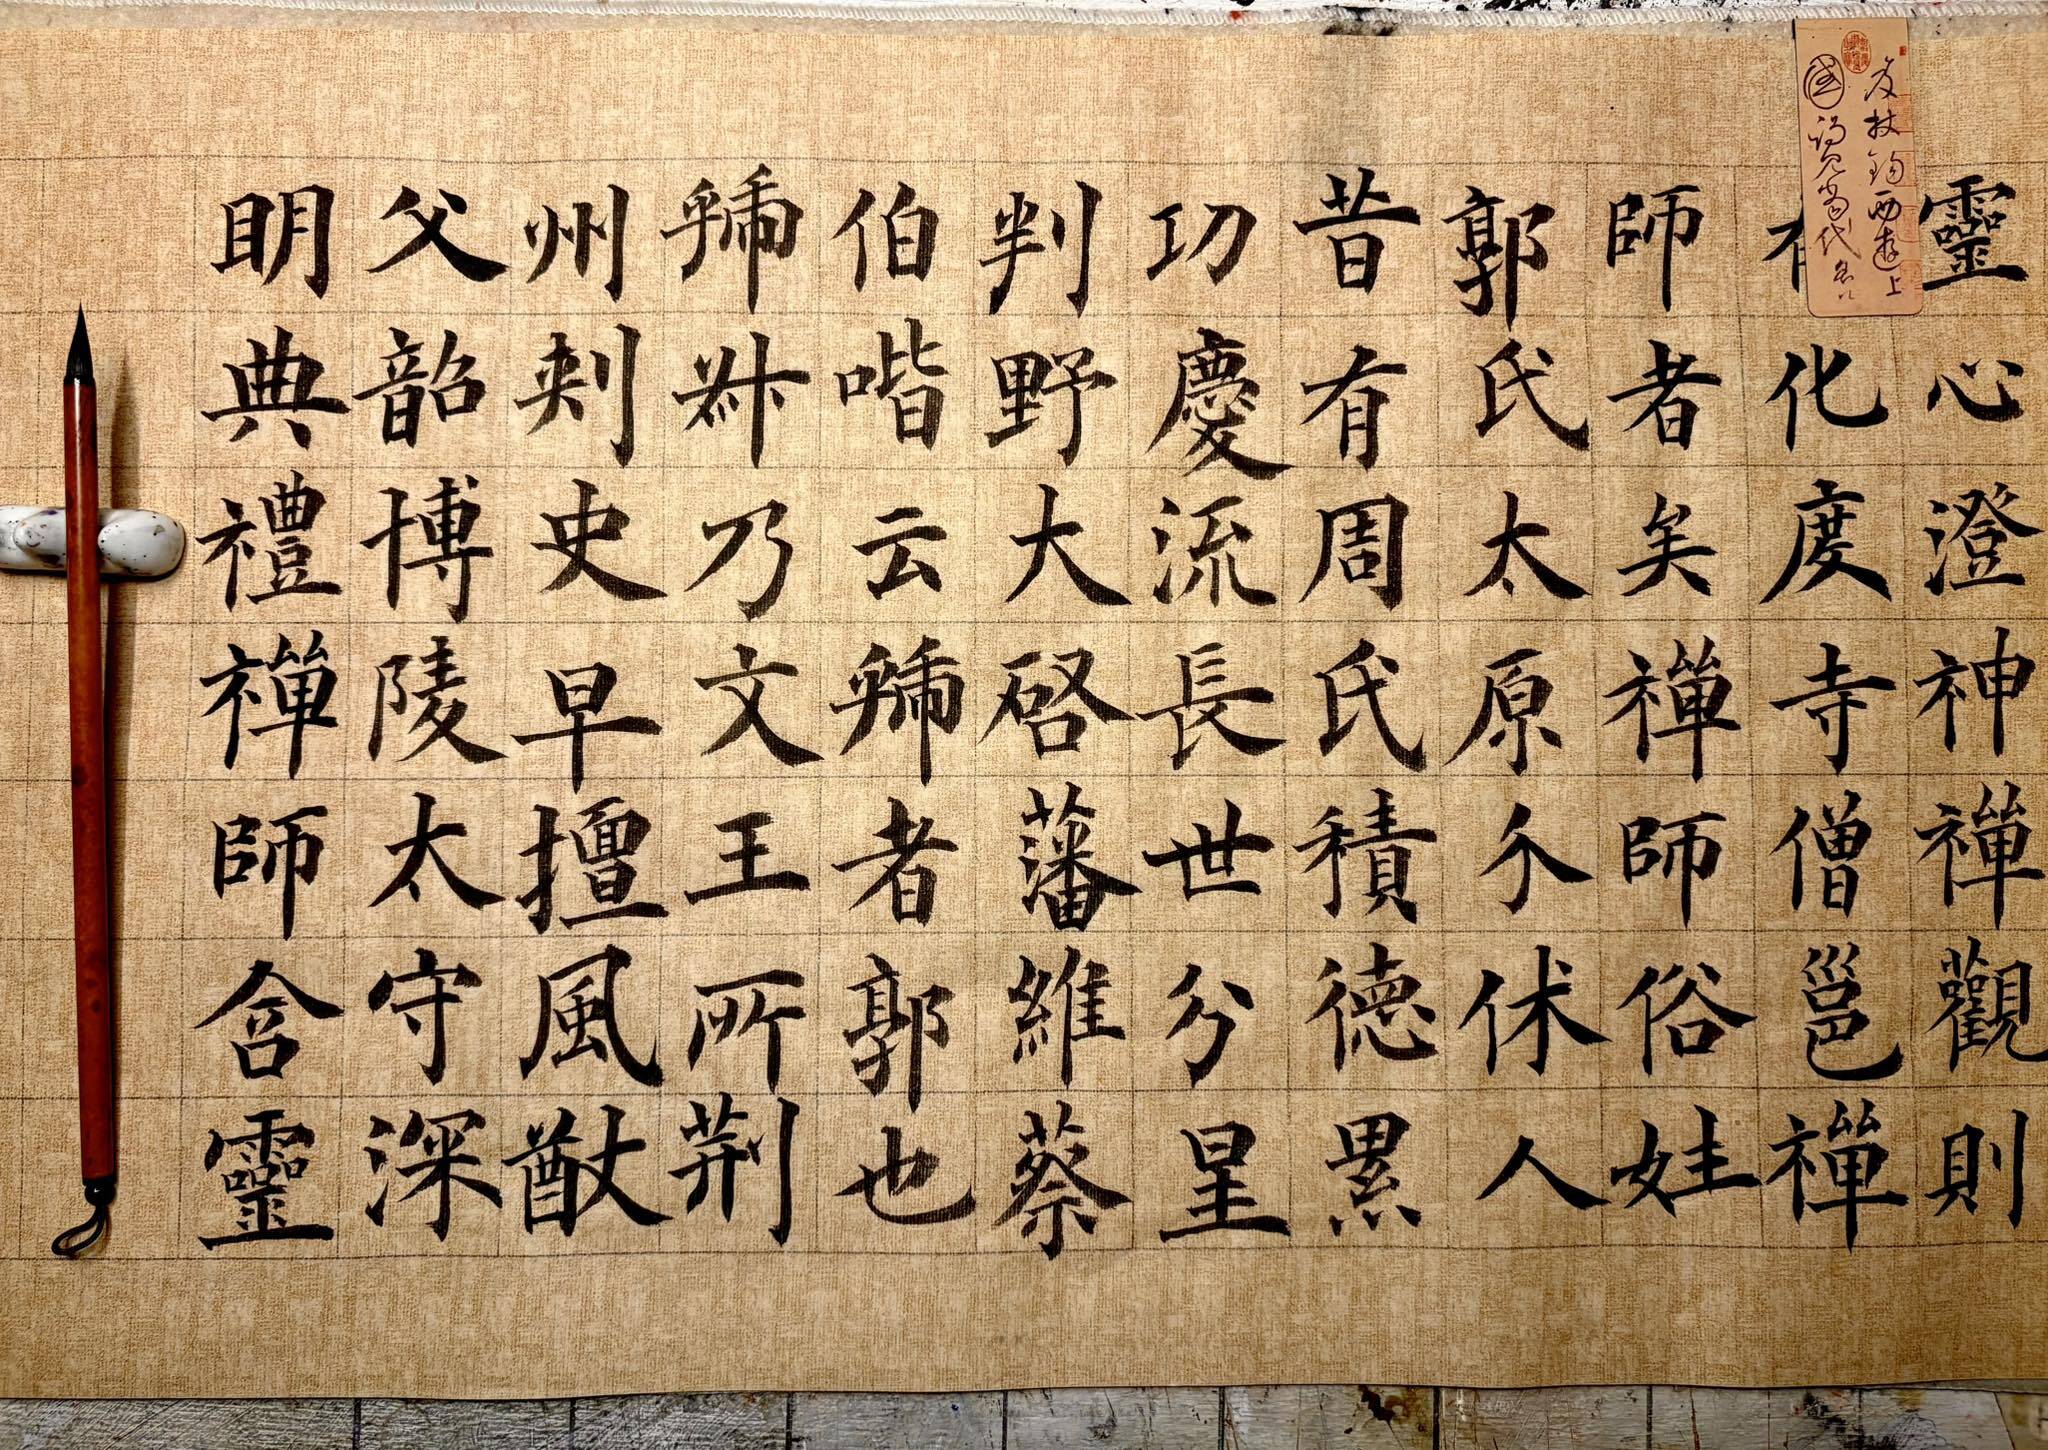 靈心澄神禪觀則
有化度寺僧邕禪
師者矣禪師俗姓
郭氏太原介休人
昔有周氏積德累
功慶流長世分星
判野大啓藩維蔡
伯喈云虢者郭也
虢叔乃文王所荊
州刺史早擅風猷
父韶博陵太守深
明典禮禪師含靈